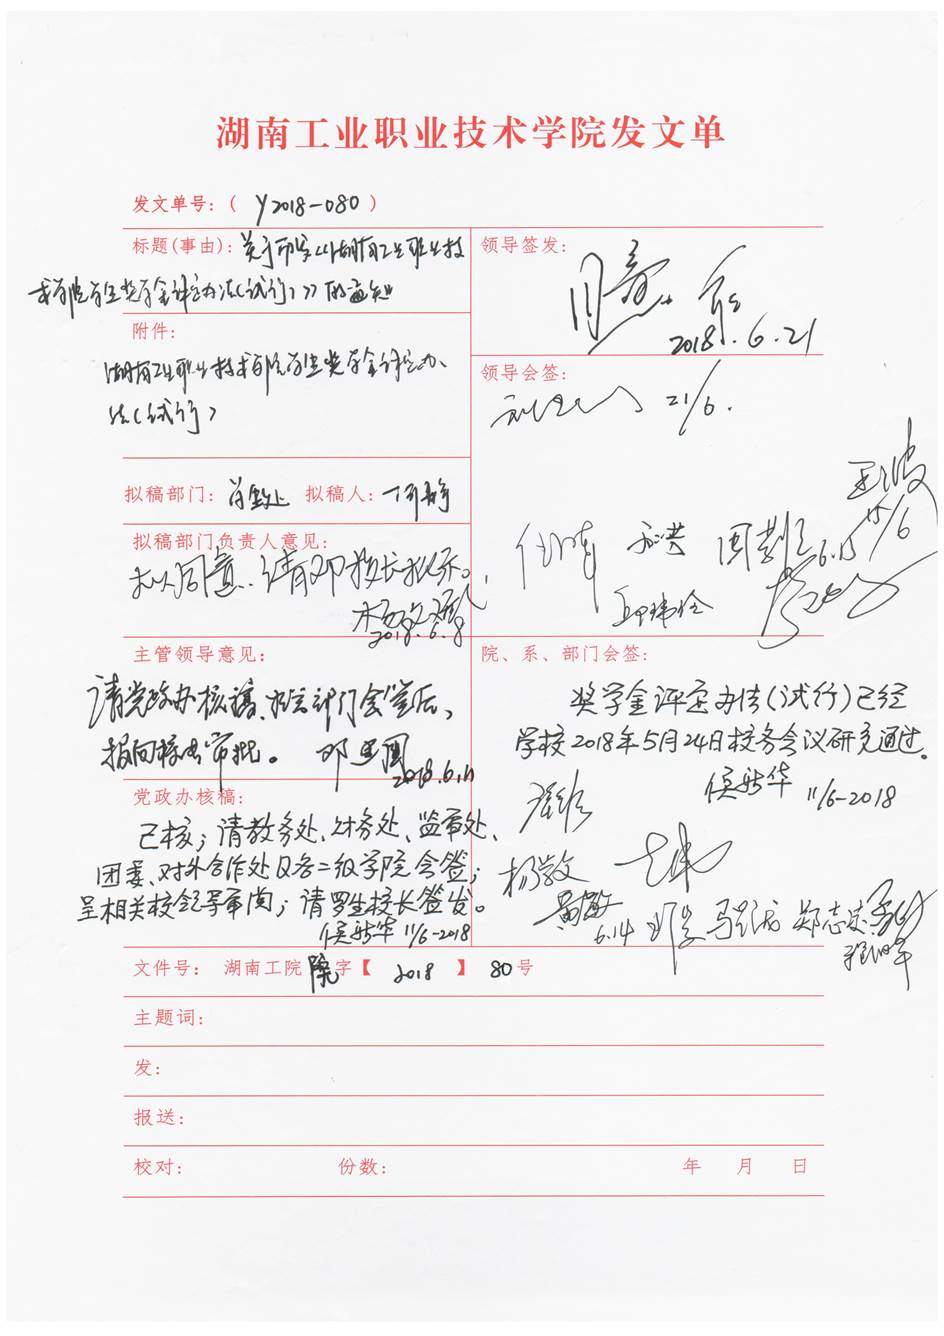 湖南工业职业技术学院发文单
发文单号：（ Y2018-080 ）
标题(事由)：关于印发《湖南工业职业技
术学院学生奖学金评定办法(试行)》的通知
附件：
湖南工业职业技术学院学生奖学金评定办
法(试行)
拟稿部门： 拟稿人：
拟稿部门负责人意见：
拟同意，请邓校长批示。
2018.6.8
主管领导意见：
请党政办核稿、相关部门会签后，
报向校长审批。
2018.6.11
党政办核稿：
已核；请教务处、财务处、监审处、
团委、对外合作处及各二级学院会签；
呈相关校领导审阅；请罗生校长签发。
侯新华 11/6-2018
领导签发：
2018.6.21
领导会签：
21/6.
15/6
6.15
院、系、部门会签：
奖学金评定办法(试行)已经
学校2018年5月24日校务会议研究通过。
侯新华 11/6-2018
杨敏
黄敏
6.14
郑志
文件号： 湖南工院 院 字【 2018 】 80 号
主题词：
发：
报送：
校对： 份数： 年 月 日